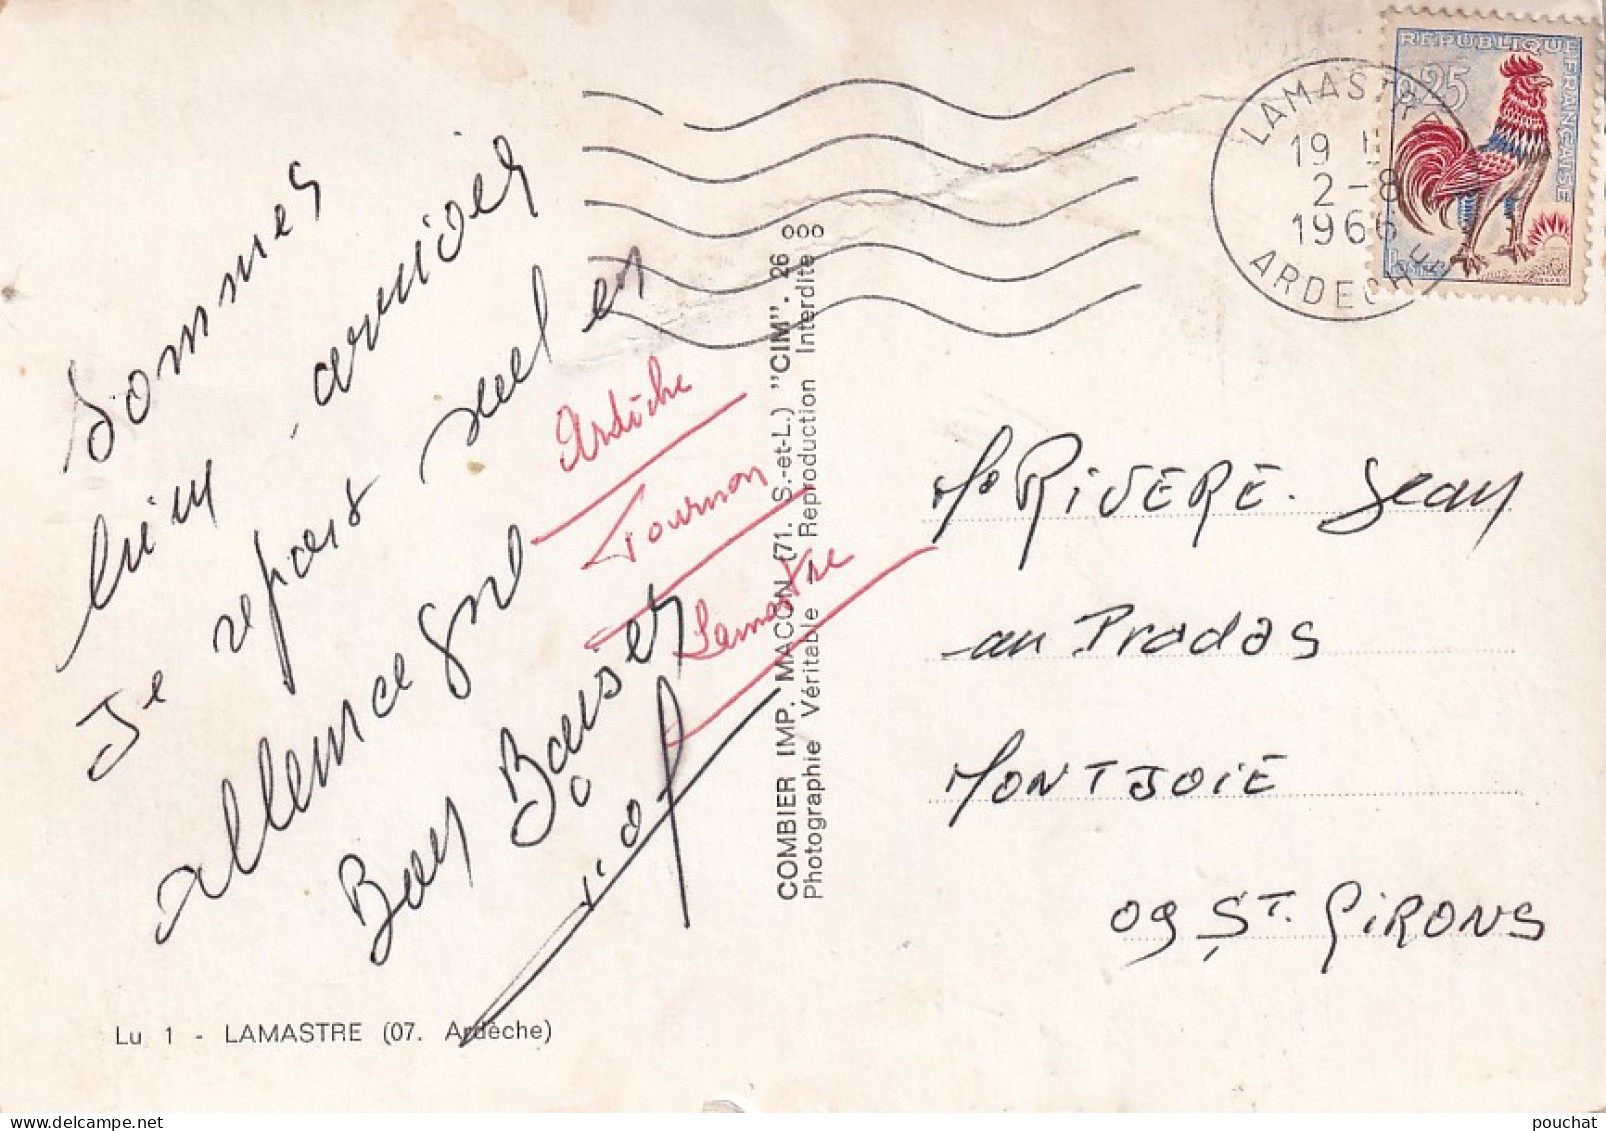 Sommes
bien arrivées
Je repars seul en
allemagne
Bons Baisers
Ardèche
Tournon
Lamastre
Lu 1 - LAMASTRE (07. Ardèche)
COMBIER IMP. MACON (71. S.-et-L.) "CIM". 26
Photographie Véritable Reproduction Interdite
ooo
LAMASTRE
19 H
2-8
1966
ARDECHE
REPUBLIQUE FRANÇAISE
0,25
POSTES
Mr RIVERE. Jean
au Pradas
MONTJOIE
09 ST. GIRONS
pouchat